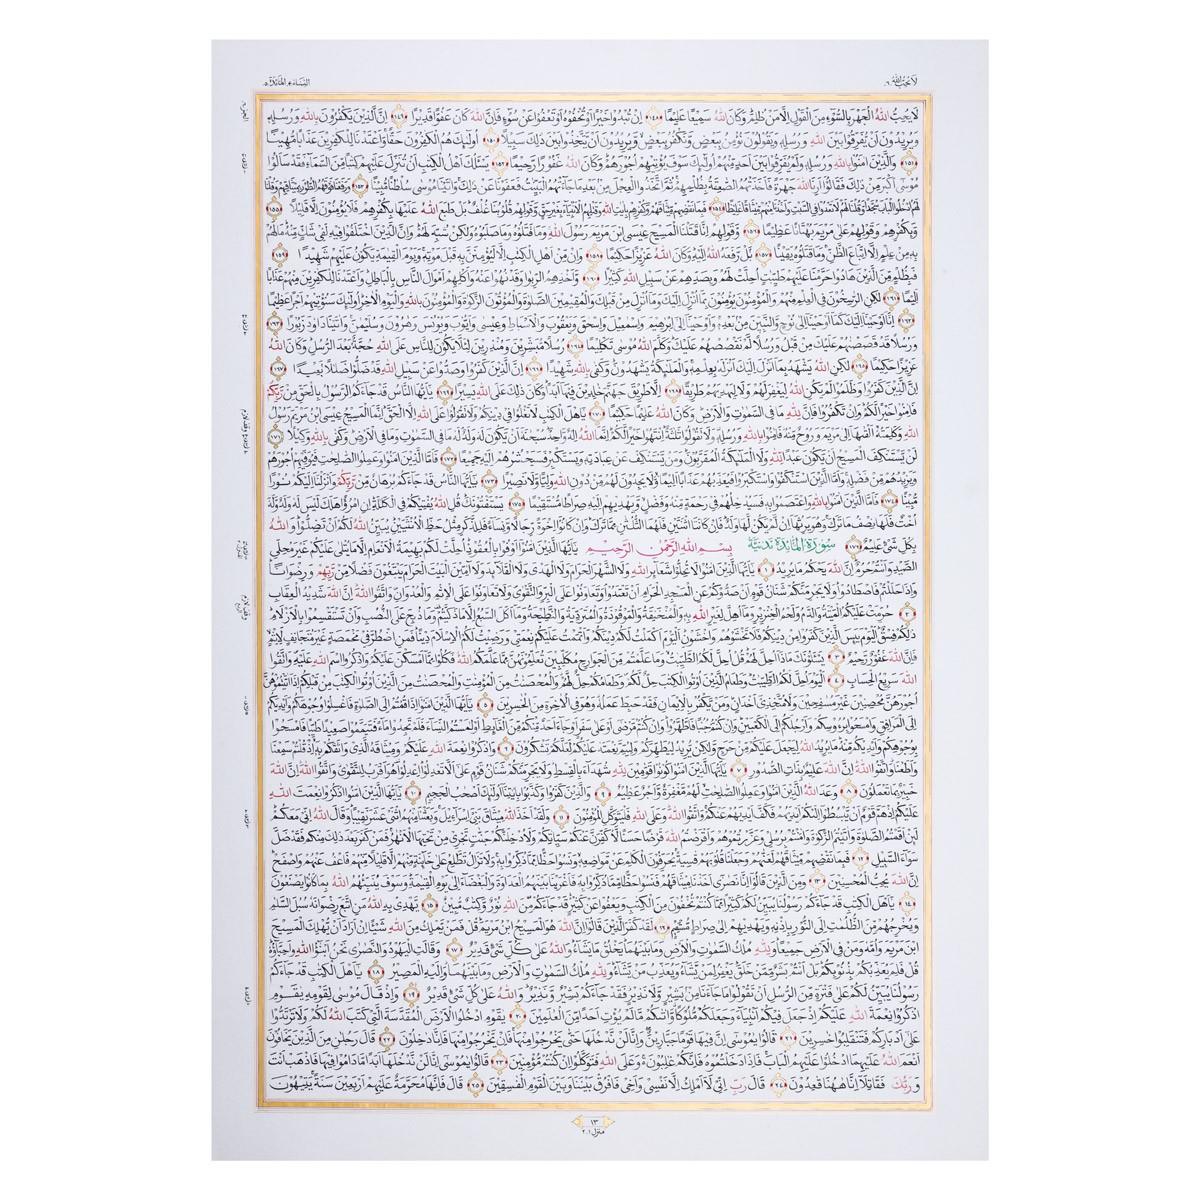 لا يحب الله ٦
النساء ٤ المائدة ٥
لا يحب الله الجهر بالسوء من القول الا من ظلم وكان الله سميعا عليما ﴿١٤٨﴾ ان تبدوا خيرا او تخفوه او تعفوا عن سوء فان الله كان عفوا قديرا ﴿١٤٩﴾ ان الذين يكفرون بالله ورسله
ويريدون ان يفرقوا بين الله ورسله ويقولون نؤمن ببعض ونكفر ببعض ويريدون ان يتخذوا بين ذلك سبيلا ﴿١٥٠﴾ اولئك هم الكفرون حقا واعتدنا للكفرين عذابا مهينا
﴿١٥١﴾ والذين امنوا بالله ورسله ولم يفرقوا بين احد منهم اولئك سوف يؤتيهم اجورهم وكان الله غفورا رحيما ﴿١٥٢﴾ يسئلك اهل الكتب ان تنزل عليهم كتبا من السماء فقد سالوا
موسى اكبر من ذلك فقالوا ارنا الله جهرة فاخذتهم الصعقة بظلمهم ثم اتخذوا العجل من بعد ما جاءتهم البينت فعفونا عن ذلك واتينا موسى سلطنا مبينا ﴿١٥٣﴾ ورفعنا فوقهم الطور بميثاقهم وقلنا
لهم ادخلوا الباب سجدا وقلنا لهم لا تعدوا في السبت واخذنا منهم ميثاقا غليظا ﴿١٥٤﴾ فبما نقضهم ميثاقهم وكفرهم بايت الله وقتلهم الانبياء بغير حق وقولهم قلوبنا غلف بل طبع الله عليها بكفرهم فلا يؤمنون الا قليلا ﴿١٥٥﴾
وبكفرهم وقولهم على مريم بهتانا عظيما ﴿١٥٦﴾ وقولهم انا قتلنا المسيح عيسى ابن مريم رسول الله وما قتلوه وما صلبوه ولكن شبه لهم وان الذين اختلفوا فيه لفي شك منه ما لهم
به من علم الا اتباع الظن وما قتلوه يقينا ﴿١٥٧﴾ بل رفعه الله اليه وكان الله عزيزا حكيما ﴿١٥٨﴾ وان من اهل الكتب الا ليؤمنن به قبل موته ويوم القيمة يكون عليهم شهيدا ﴿١٥٩﴾
فبظلم من الذين هادوا حرمنا عليهم طيبت احلت لهم وبصدهم عن سبيل الله كثيرا ﴿١٦٠﴾ واخذهم الربوا وقد نهوا عنه واكلهم اموال الناس بالباطل واعتدنا للكفرين منهم عذابا
اليما ﴿١٦١﴾ لكن الرسخون في العلم منهم والمؤمنون يؤمنون بما انزل اليك وما انزل من قبلك والمقيمين الصلوة والمؤتون الزكوة والمؤمنون بالله واليوم الاخر اولئك سنؤتيهم اجرا عظيما
﴿١٦٢﴾ انا اوحينا اليك كما اوحينا الى نوح والنبين من بعده واوحينا الى ابرهيم واسمعيل واسحق ويعقوب والاسباط وعيسى وايوب ويونس وهرون وسليمن واتينا داود زبورا ﴿١٦٣﴾
ورسلا قد قصصنهم عليك من قبل ورسلا لم نقصصهم عليك وكلم الله موسى تكليما ﴿١٦٤﴾ رسلا مبشرين ومنذرين لئلا يكون للناس على الله حجة بعد الرسل وكان الله
عزيزا حكيما ﴿١٦٥﴾ لكن الله يشهد بما انزل اليك انزله بعلمه والملئكة يشهدون وكفى بالله شهيدا ﴿١٦٦﴾ ان الذين كفروا وصدوا عن سبيل الله قد ضلوا ضللا بعيدا ﴿١٦٧﴾
ان الذين كفروا وظلموا لم يكن الله ليغفر لهم ولا ليهديهم طريقا ﴿١٦٨﴾ الا طريق جهنم خلدين فيها ابدا وكان ذلك على الله يسيرا ﴿١٦٩﴾ يايها الناس قد جاءكم الرسول بالحق من ربكم
فامنوا خيرا لكم وان تكفروا فان لله ما في السموت والارض وكان الله عليما حكيما ﴿١٧٠﴾ ياهل الكتب لا تغلوا في دينكم ولا تقولوا على الله الا الحق انما المسيح عيسى ابن مريم رسول
الله وكلمته القىها الى مريم وروح منه فامنوا بالله ورسله ولا تقولوا ثلثة انتهوا خيرا لكم انما الله اله واحد سبحنه ان يكون له ولد له ما في السموت وما في الارض وكفى بالله وكيلا ﴿١٧١﴾
لن يستنكف المسيح ان يكون عبدا لله ولا الملئكة المقربون ومن يستنكف عن عبادته ويستكبر فسيحشرهم اليه جميعا ﴿١٧٢﴾ فاما الذين امنوا وعملوا الصلحت فيوفيهم اجورهم
ويزيدهم من فضله واما الذين استنكفوا واستكبروا فيعذبهم عذابا اليما ولا يجدون لهم من دون الله وليا ولا نصيرا ﴿١٧٣﴾ يايها الناس قد جاءكم برهان من ربكم وانزلنا اليكم نورا
مبينا ﴿١٧٤﴾ فاما الذين امنوا بالله واعتصموا به فسيدخلهم في رحمة منه وفضل ويهديهم اليه صراطا مستقيما ﴿١٧٥﴾ يستفتونك قل الله يفتيكم في الكللة ان امرؤا هلك ليس له ولد وله
اخت فلها نصف ما ترك وهو يرثها ان لم يكن لها ولد فان كانتا اثنتين فلهما الثلثن مما ترك وان كانوا اخوة رجالا ونساء فللذكر مثل حظ الانثيين يبين الله لكم ان تضلوا والله
بكل شىء عليم ﴿١٧٦﴾ سورة المائدة مدنية بسم الله الرحمن الرحيم يايها الذين امنوا اوفوا بالعقود احلت لكم بهيمة الانعام الا ما يتلى عليكم غير محلى
الصيد وانتم حرم ان الله يحكم ما يريد ﴿١﴾ يايها الذين امنوا لا تحلوا شعائر الله ولا الشهر الحرام ولا الهدى ولا القلائد ولا امين البيت الحرام يبتغون فضلا من ربهم ورضوانا
واذا حللتم فاصطادوا ولا يجرمنكم شنان قوم ان صدوكم عن المسجد الحرام ان تعتدوا وتعاونوا على البر والتقوى ولا تعاونوا على الاثم والعدوان واتقوا الله ان الله شديد العقاب
﴿٢﴾ حرمت عليكم الميتة والدم ولحم الخنزير وما اهل لغير الله به والمنخنقة والموقوذة والمتردية والنطيحة وما اكل السبع الا ما ذكيتم وما ذبح على النصب وان تستقسموا بالازلام
ذلكم فسق اليوم يئس الذين كفروا من دينكم فلا تخشوهم واخشون اليوم اكملت لكم دينكم واتممت عليكم نعمتي ورضيت لكم الاسلام دينا فمن اضطر في مخمصة غير متجانف لاثم
فان الله غفور رحيم ﴿٣﴾ يسئلونك ماذا احل لهم قل احل لكم الطيبت وما علمتم من الجوارح مكلبين تعلمونهن مما علمكم الله فكلوا مما امسكن عليكم واذكروا اسم الله عليه واتقوا
الله ان الله سريع الحساب ﴿٤﴾ اليوم احل لكم الطيبت وطعام الذين اوتوا الكتب حل لكم وطعامكم حل لهم والمحصنت من المؤمنت والمحصنت من الذين اوتوا الكتب من قبلكم اذا اتيتموهن
اجورهن محصنين غير مسفحين ولا متخذى اخدان ومن يكفر بالايمان فقد حبط عمله وهو في الاخرة من الخسرين ﴿٥﴾ يايها الذين امنوا اذا قمتم الى الصلوة فاغسلوا وجوهكم وايديكم
الى المرافق وامسحوا برءوسكم وارجلكم الى الكعبين وان كنتم جنبا فاطهروا وان كنتم مرضى او على سفر او جاء احد منكم من الغائط او لمستم النساء فلم تجدوا ماء فتيمموا صعيدا طيبا فامسحوا
بوجوهكم وايديكم منه ما يريد الله ليجعل عليكم من حرج ولكن يريد ليطهركم وليتم نعمته عليكم لعلكم تشكرون ﴿٦﴾ واذكروا نعمة الله عليكم وميثاقه الذى واثقكم به اذ قلتم سمعنا
واطعنا واتقوا الله ان الله عليم بذات الصدور ﴿٧﴾ يايها الذين امنوا كونوا قومين لله شهداء بالقسط ولا يجرمنكم شنان قوم على الا تعدلوا اعدلوا هو اقرب للتقوى واتقوا الله ان الله
خبير بما تعملون ﴿٨﴾ وعد الله الذين امنوا وعملوا الصلحت لهم مغفرة واجر عظيم ﴿٩﴾ والذين كفروا وكذبوا بايتنا اولئك اصحب الجحيم ﴿١٠﴾ يايها الذين امنوا اذكروا نعمت الله
عليكم اذ هم قوم ان يبسطوا اليكم ايديهم فكف ايديهم عنكم واتقوا الله وعلى الله فليتوكل المؤمنون ﴿١١﴾ ولقد اخذ الله ميثاق بني اسراءيل وبعثنا منهم اثنى عشر نقيبا وقال الله اني معكم
لئن اقمتم الصلوة واتيتم الزكوة وامنتم برسلي وعزرتموهم واقرضتم الله قرضا حسنا لاكفرن عنكم سياتكم ولادخلنكم جنت تجري من تحتها الانهر فمن كفر بعد ذلك منكم فقد ضل
سواء السبيل ﴿١٢﴾ فبما نقضهم ميثاقهم لعنهم وجعلنا قلوبهم قسية يحرفون الكلم عن مواضعه ونسوا حظا مما ذكروا به ولا تزال تطلع على خائنة منهم الا قليلا منهم فاعف عنهم واصفح
ان الله يحب المحسنين ﴿١٣﴾ ومن الذين قالوا انا نصرى اخذنا ميثاقهم فنسوا حظا مما ذكروا به فاغرينا بينهم العداوة والبغضاء الى يوم القيمة وسوف ينبئهم الله بما كانوا يصنعون
﴿١٤﴾ ياهل الكتب قد جاءكم رسولنا يبين لكم كثيرا مما كنتم تخفون من الكتب ويعفوا عن كثير قد جاءكم من الله نور وكتب مبين ﴿١٥﴾ يهدى به الله من اتبع رضوانه سبل السلم
ويخرجهم من الظلمت الى النور باذنه ويهديهم الى صراط مستقيم ﴿١٦﴾ لقد كفر الذين قالوا ان الله هو المسيح ابن مريم قل فمن يملك من الله شيئا ان اراد ان يهلك المسيح
ابن مريم وامه ومن في الارض جميعا ولله ملك السموت والارض وما بينهما يخلق ما يشاء والله على كل شىء قدير ﴿١٧﴾ وقالت اليهود والنصرى نحن ابنؤا الله واحباؤه
قل فلم يعذبكم بذنوبكم بل انتم بشر ممن خلق يغفر لمن يشاء ويعذب من يشاء ولله ملك السموت والارض وما بينهما واليه المصير ﴿١٨﴾ ياهل الكتب قد جاءكم
رسولنا يبين لكم على فترة من الرسل ان تقولوا ما جاءنا من بشير ولا نذير فقد جاءكم بشير ونذير والله على كل شىء قدير ﴿١٩﴾ واذ قال موسى لقومه يقوم
اذكروا نعمة الله عليكم اذ جعل فيكم انبياء وجعلكم ملوكا واتىكم ما لم يؤت احدا من العلمين ﴿٢٠﴾ يقوم ادخلوا الارض المقدسة التي كتب الله لكم ولا ترتدوا
على ادباركم فتنقلبوا خسرين ﴿٢١﴾ قالوا يموسى ان فيها قوما جبارين وانا لن ندخلها حتى يخرجوا منها فان يخرجوا منها فانا دخلون ﴿٢٢﴾ قال رجلن من الذين يخافون
انعم الله عليهما ادخلوا عليهم الباب فاذا دخلتموه فانكم غلبون وعلى الله فتوكلوا ان كنتم مؤمنين ﴿٢٣﴾ قالوا يموسى انا لن ندخلها ابدا ما داموا فيها فاذهب انت
وربك فقاتلا انا ههنا قعدون ﴿٢٤﴾ قال رب اني لا املك الا نفسي واخي فافرق بيننا وبين القوم الفسقين ﴿٢٥﴾ قال فانها محرمة عليهم اربعين سنة يتيهون
١٣
منزل ١، ٢